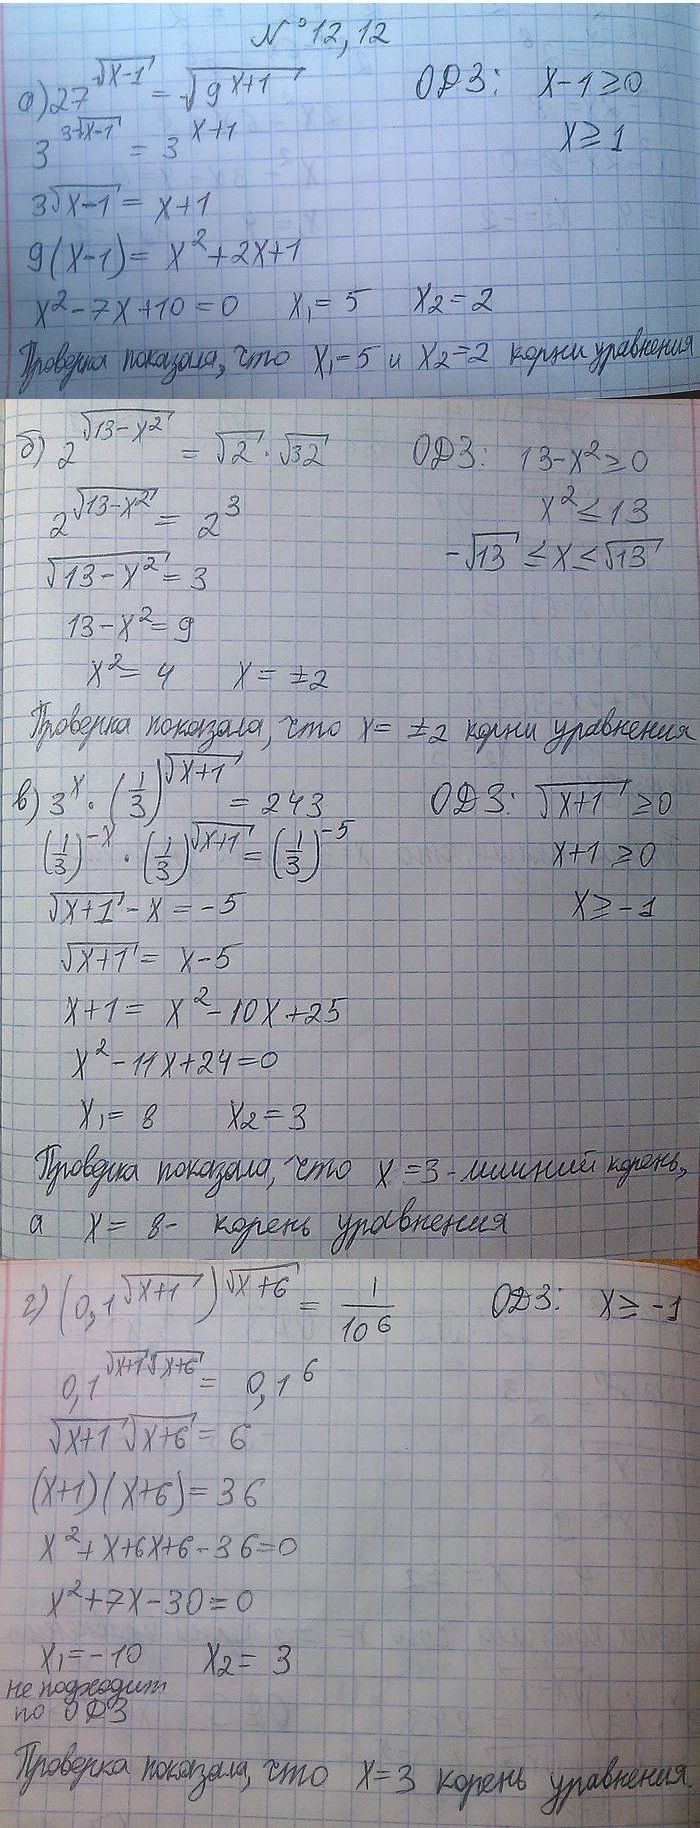 № 12,12
а) 27^√(x-1) = √(9^(x+1)) ОДЗ: x-1≥0
3^(3√(x-1)) = 3^(x+1) x≥1
3√(x-1) = x+1
9(x-1) = x²+2x+1
x²-7x+10=0 x₁=5 x₂=2
Проверка показала, что x₁=5 и x₂=2 корни уравнения
б) 2^√(13-x²) = √2·√32 ОДЗ: 13-x²≥0
2^√(13-x²) = 2³ x²≤13
√(13-x²) = 3 -√13 ≤ x ≤ √13
13-x²=9
x²=4 x=±2
Проверка показала, что x=±2 корни уравнения
в) 3^x·(1/3)^√(x+1) = 243 ОДЗ: √(x+1) ≥0
(1/3)^(-x)·(1/3)^√(x+1) = (1/3)^(-5) x+1≥0
√(x+1) - x = -5 x≥-1
√(x+1) = x-5
x+1 = x²-10x+25
x²-11x+24=0
x₁=8 x₂=3
Проверка показала, что x=3 - лишний корень,
а x=8- корень уравнения
г) (0,1^√(x+1))^√(x+6) = 1/10⁶ ОДЗ: x≥-1
0,1^(√(x+1)√(x+6)) = 0,1⁶
√(x+1)√(x+6) = 6
(x+1)(x+6)=36
x²+x+6x+6-36=0
x²+7x-30=0
x₁=-10 x₂=3
не подходит
по ОДЗ
Проверка показала, что x=3 корень уравнения